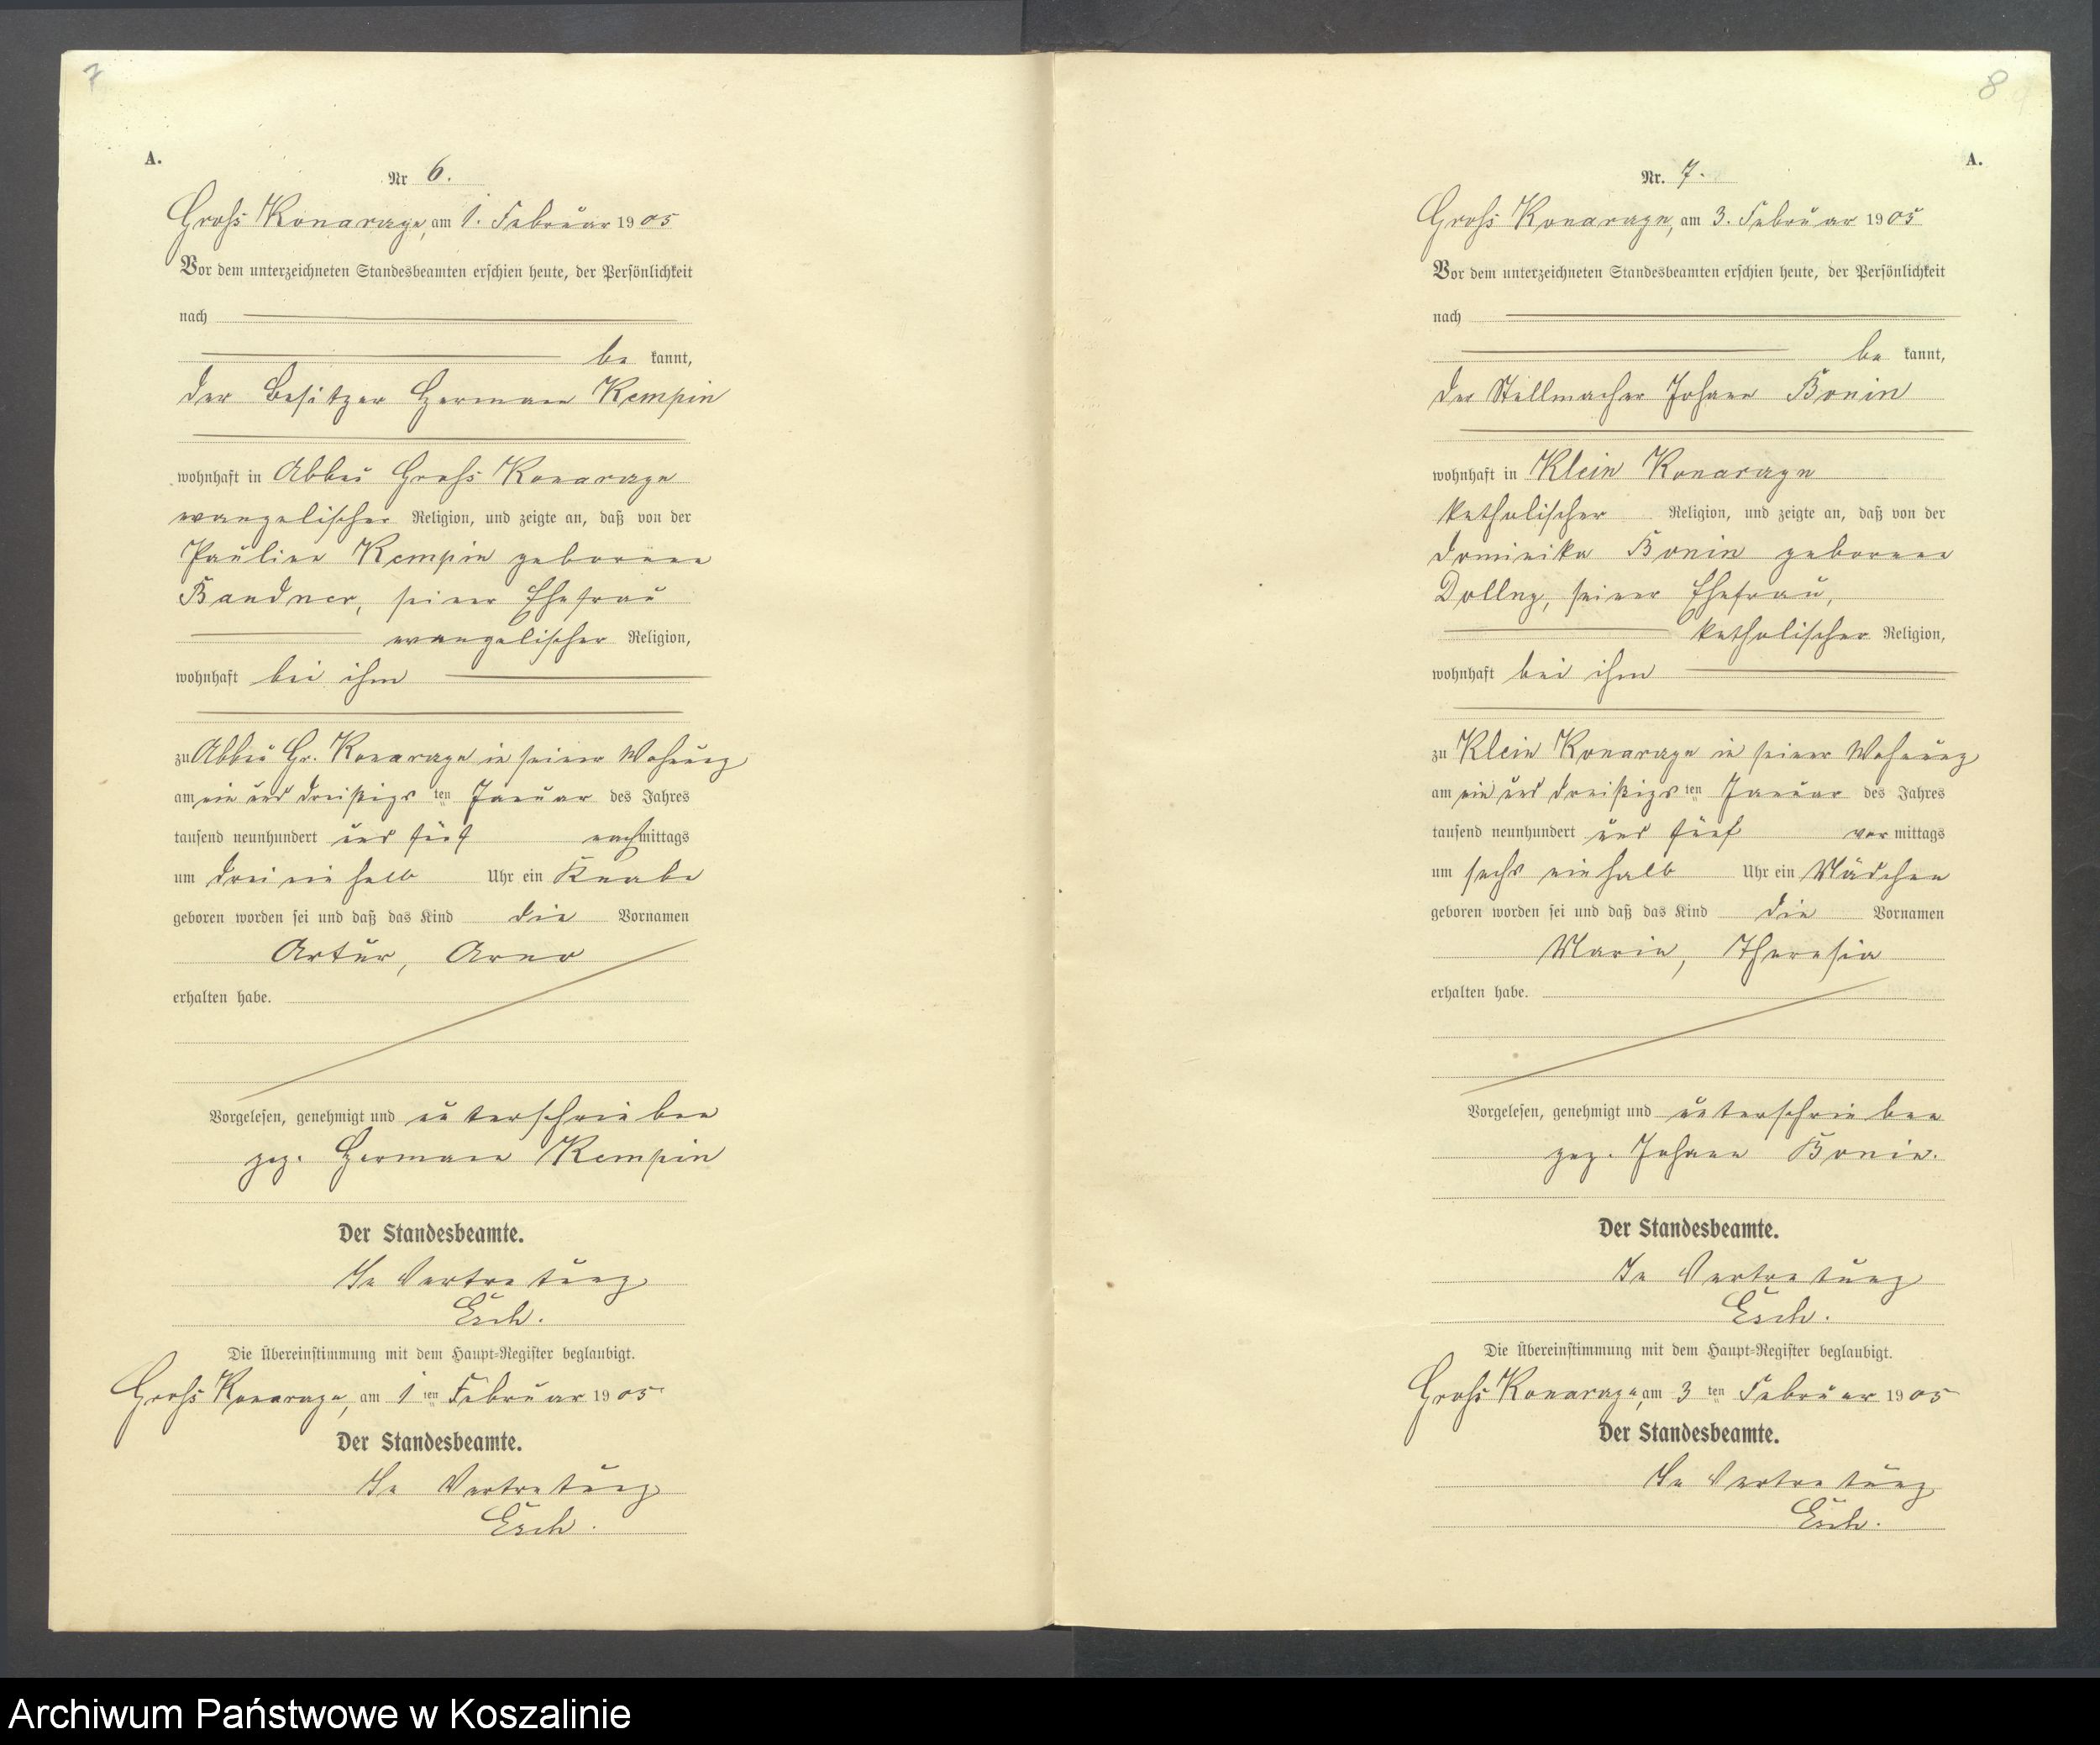 7
A.
Nr 6.
Groß Konarage, am 1. Februar 1905
Vor dem unterzeichneten Standesbeamten erschien heute, der Persönlichkeit
nach
be kannt,
der Besitzer Hermann Kempin
wohnhaft in Abbau Groß Konarage
evangelischer Religion, und zeigte an, daß von der
Pauline Kempin geborenen
Bandner, seiner Ehefrau
evangelischer Religion,
wohnhaft bei ihm
zu Abbau Gr. Konarage in seiner Wohnung
am ein und dreißigs ten Januar des Jahres
tausend neunhundert und fünf nachmittags
um drei ein halb Uhr ein Knabe
geboren worden sei und daß das Kind die Vornamen
Artur, Arno
erhalten habe.
Vorgelesen, genehmigt und unterschrieben
gez. Hermann Kempin
Der Standesbeamte.
In Vertretung
Esch.
Die Übereinstimmung mit dem Haupt-Register beglaubigt.
Groß Konarage, am 1 ten Februar 1905
Der Standesbeamte.
In Vertretung
Esch.
8
A.
Nr. 7.
Groß Konarage, am 3. Februar 1905
Vor dem unterzeichneten Standesbeamten erschien heute, der Persönlichkeit
nach
be kannt,
der Stellmacher Johann Bonin
wohnhaft in Klein Konarage
katholischer Religion, und zeigte an, daß von der
Dominika Bonin geborenen
Dollny, seiner Ehefrau,
katholischer Religion,
wohnhaft bei ihm
zu Klein Konarage in seiner Wohnung
am ein und dreißigs ten Januar des Jahres
tausend neunhundert und fünf vor mittags
um sechs ein halb Uhr ein Mädchen
geboren worden sei und daß das Kind die Vornamen
Maria, Theresia
erhalten habe.
Vorgelesen, genehmigt und unterschrieben
gez. Johann Bonin.
Der Standesbeamte.
In Vertretung
Esch.
Die Übereinstimmung mit dem Haupt-Register beglaubigt.
Groß Konarage, am 3 ten Februar 1905
Der Standesbeamte.
In Vertretung
Esch.
Archiwum Państwowe w Koszalinie